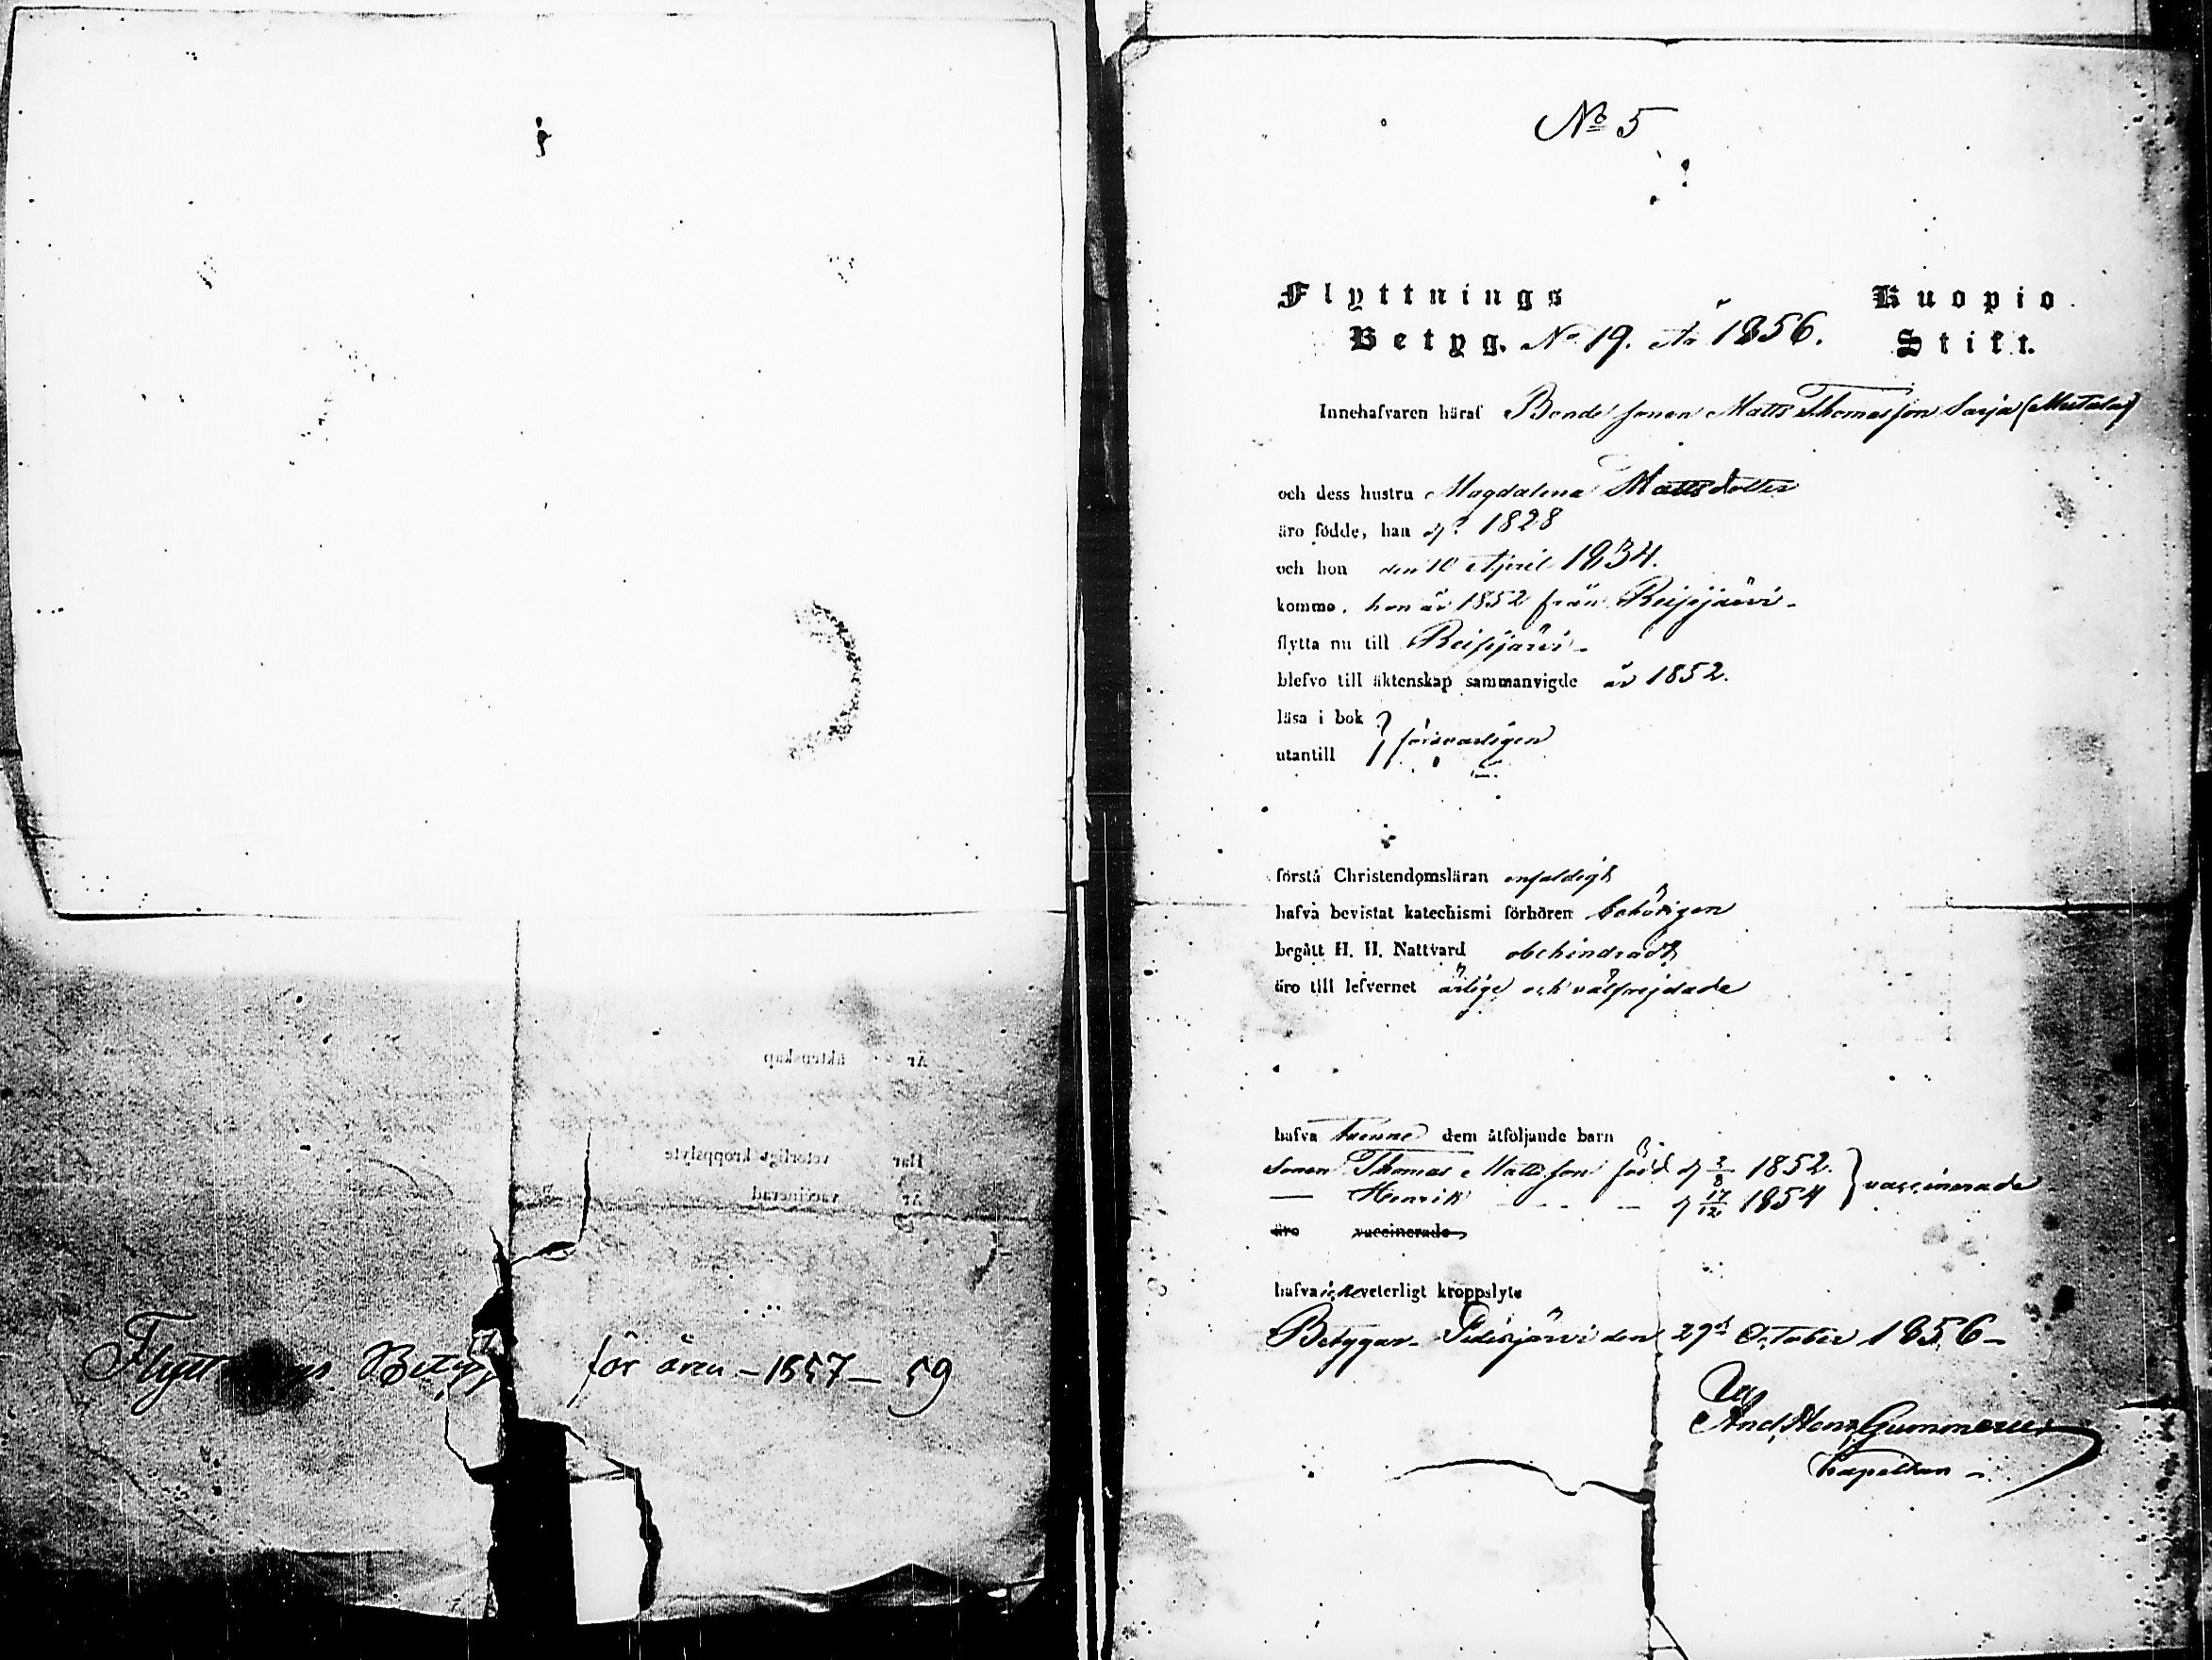 Flyttnings Betyg för åren - 1857 - 59
är äktenskap
Har veterligt kroppslyte
är vaccinerad
No 5
Flyttnings Kuopio
Betyg. No 19. år 1856. Stift.
Innehafvaren häraf Bonde sonen Matts Thomasson Sarja (Mutala)
och dess hustru Magdalena Mattsdotter
äro födde, han d. ? 1828
och hon den 10 April 1834.
komme. hon år 1852 från Reisjärvi -
flytta nu till Reisjärvi -
blefvo till äktenskap sammanvigde år 1852.
läsa i bok
utantill } försvarligen
förstå Christendomsläran enfaldigt
hafva bevistat katechismi förhören behörigen
begått H. H. Nattvard obehindradt
äro till lefvernet ärlige och välfrejdade
hafva tvenne dem åtföljande barn
Sonen Thomas Mattsson född d 2/8 1852. } vaccinerade
— Henrik - - - — d 17/12 1854
äro vaccinerade
hafva icke veterligt kroppslyte
Betygar - Pidisjärvi den 29de October 1856 -
And. Henr. Gummerus
Capellan -